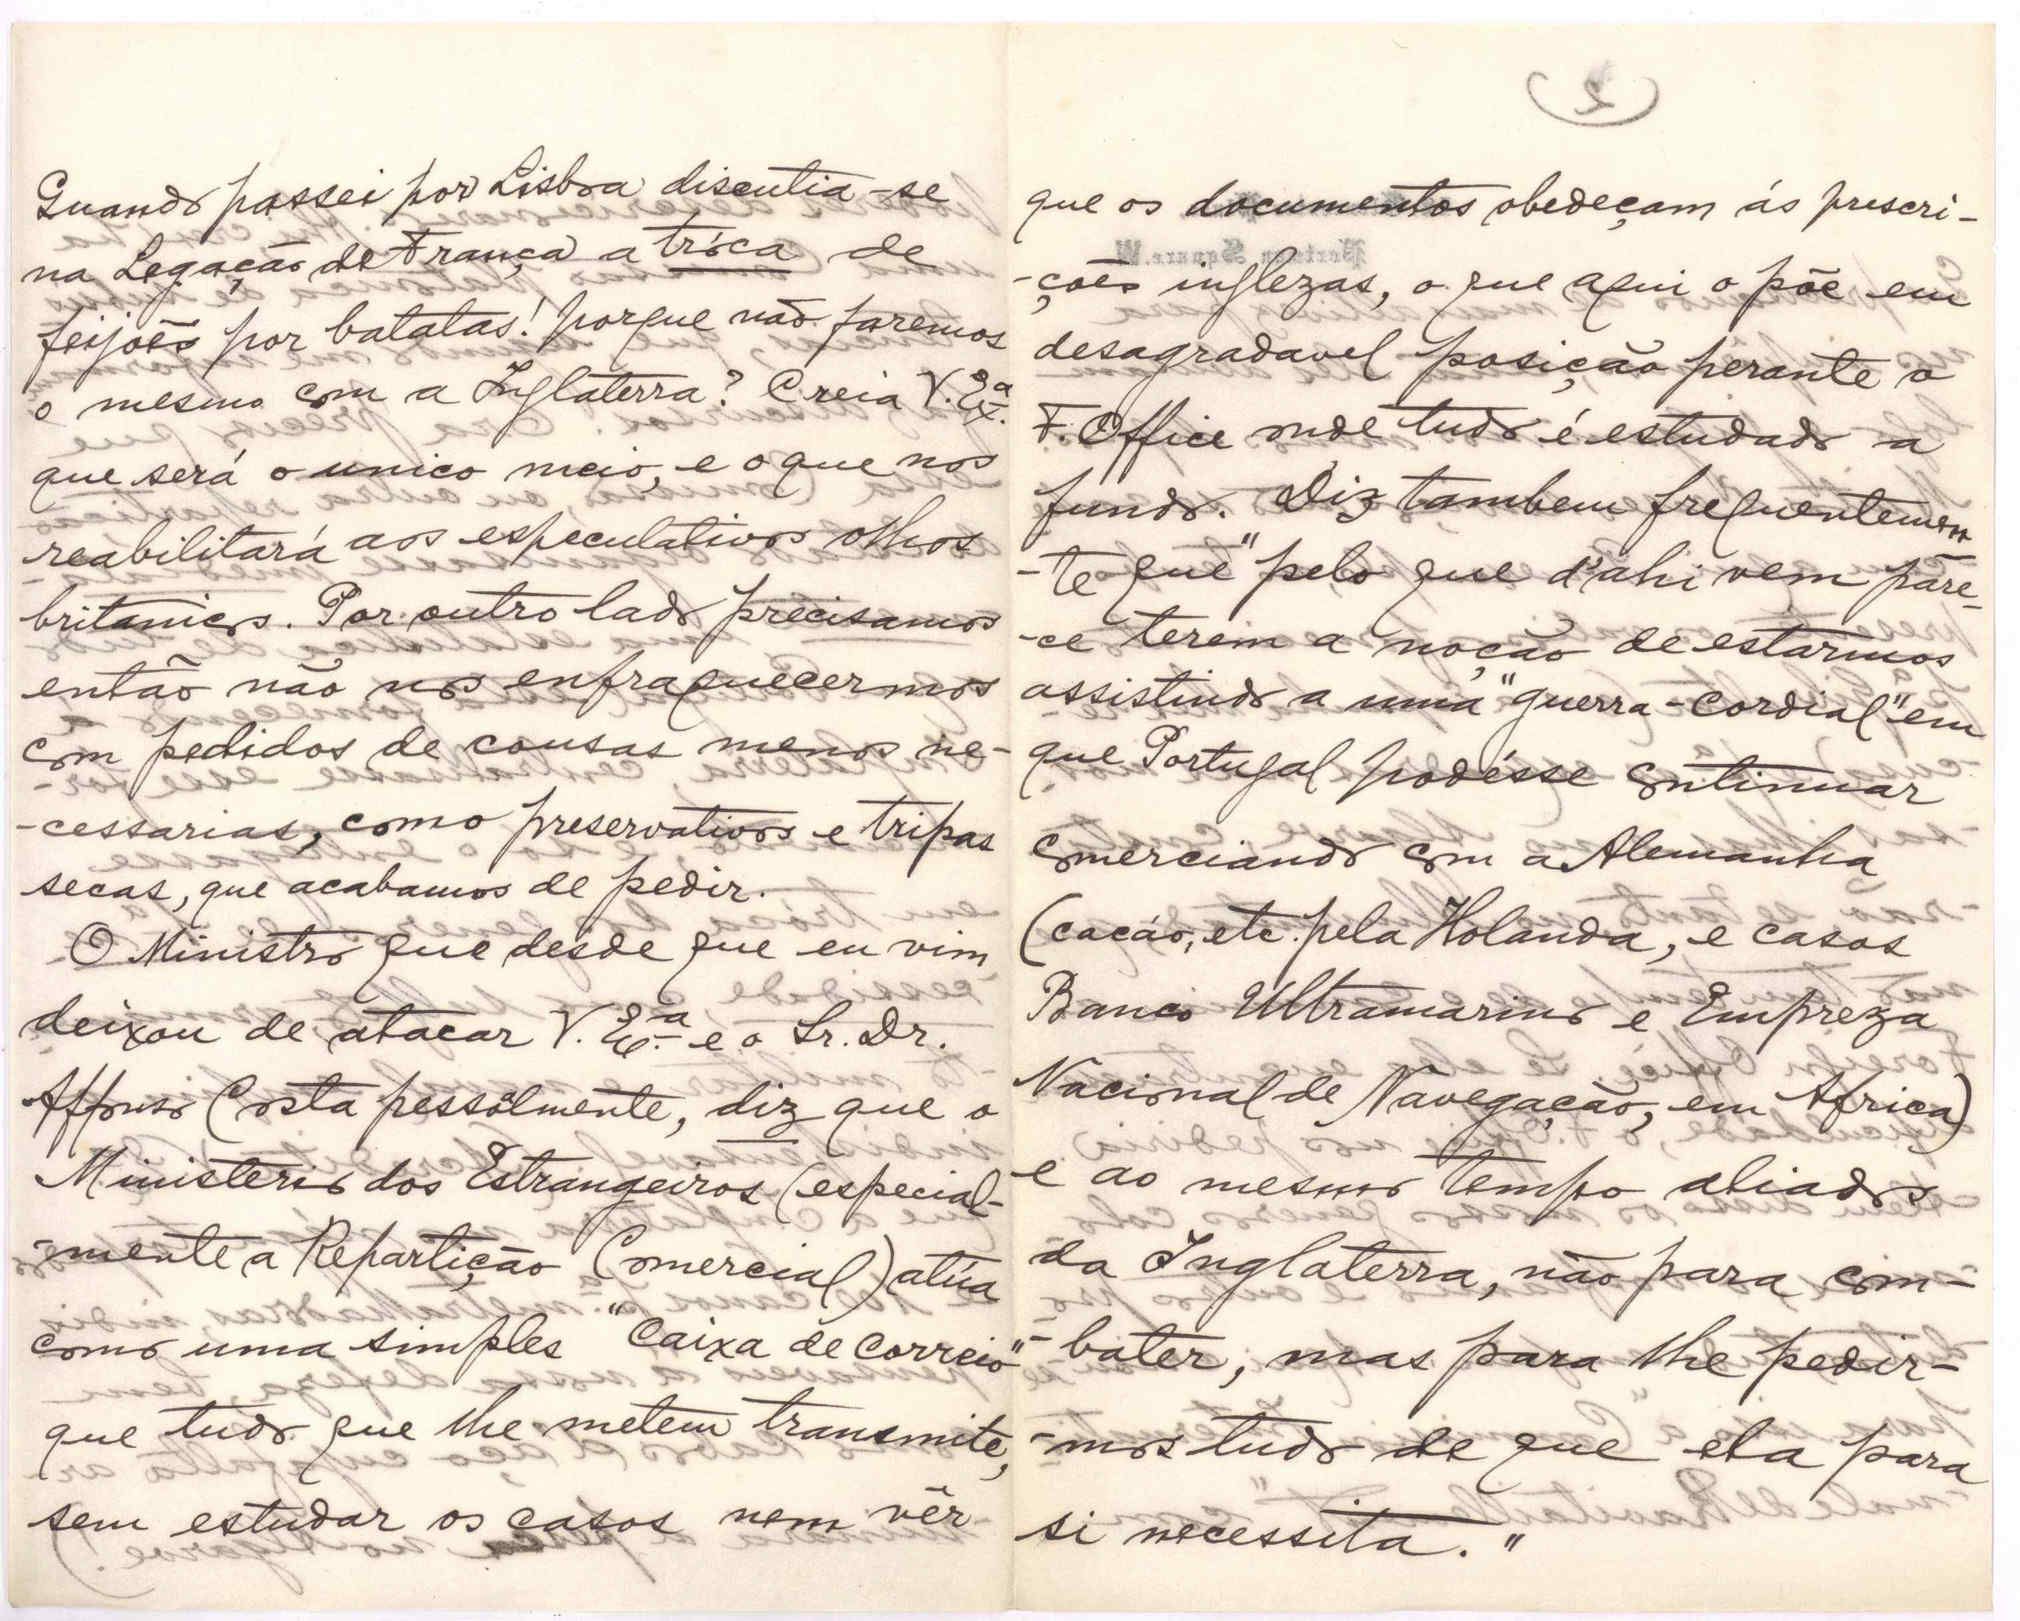 Quando passei por Lisboa discutia-se
na Legação de França a tróca de
feijões por batatas! porque não faremos
o mesmo com a Inglaterra? Creia V. Exª.
que será o unico meio, e o que nos
reabilitará aos especulativos olhos
britanicos. Por outro lado precisamos
então não nos enfraquecermos
com pedidos de cousas menos ne-
-cessarias, como preservativos e tripas
secas, que acabamos de pedir.
O Ministro que desde que eu vim
deixou de atacar V. Exª. e o Sr. Dr.
Affonso Costa pessoalmente, diz que o
Ministerio dos Estrangeiros (especial-
-mente a Repartição Comercial) atúa
como uma simples "Caixa de correio"
que tudo que lhe metem transmite,
sem estudar os casos nem vêr
(2)
que os documentos obedeçam ás prescri-
-ções inglezas, o que aqui o põe em
desagradavel posição perante o
F. Office onde tudo é estudado a
fundo. Diz tambem frequentemen-
-te que "pelo que d'ahi vem páre-
-ce terem a noção de estarmos
assistindo a uma "guerra-cordial" em
que Portugal podésse continuar
comerciando com a Alemanha
(cacáo, etc. pela Holanda, e casos
Banco Ultramarino e Empreza
Nacional de Navegação, em Africa)
e ao mesmo tempo aliados
da Inglaterra, não para com-
-bater, mas para lhe pedir-
-mos tudo de que ela para
si necessita."
Portman Square. W.